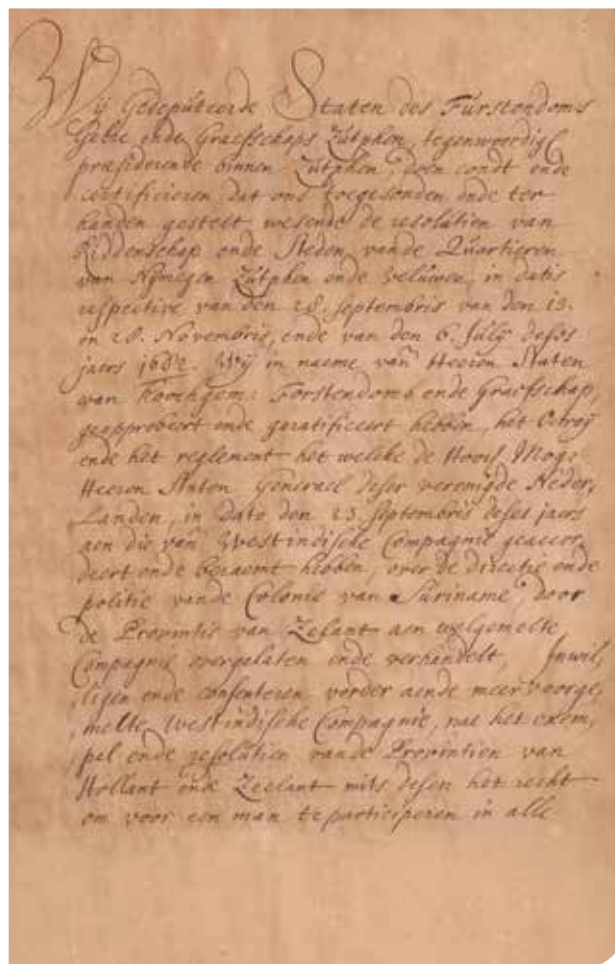 Wij Gedepúteerde Staten des Fúrstendoms
Gelre ende Graefschaps Zútphen, tegenwoordigh
præsiderende binnen Zútphen, doen condt ende
certificieren, dat ons toegesonden ende ter
handen gestelt wesende de resolútien van
Ridderschap ende Steden vande Qúartieren
van Nijmegen Zútphen ende Velúwen, in datis
respective van den 28. septembris van den 13.
en 20. Novembris, ende van den 6. Júlij deses
jaers 1682. Wij in naeme van Heeren Staten
van Fúrstendoms ende Graefschap,
geapprobeert ende geratificeert hebben, het Octroij
ende het reglement het welcke de Hooch Moge
Heeren Staten Generael deser verenigde Neder,
Landen, in dato den 23 septembris deses jaers
aen die van Westindische Compagnie geaccor,
deert ende beraemt hebben, over de directie ende
politie vande Colonie van Súriname, door
de Provintie van Zelant aen welgemelte
Compagnie overgelaten ende verhandelt, Inwil,
ligen ende consenteren vorder aende meer voorge,
melte, Westindische Compagnie, nae het exem,
pel ende resolútien vande Provintien van
Hollant ende Zeelant mits desen het recht
om voor een man te participeren in alle